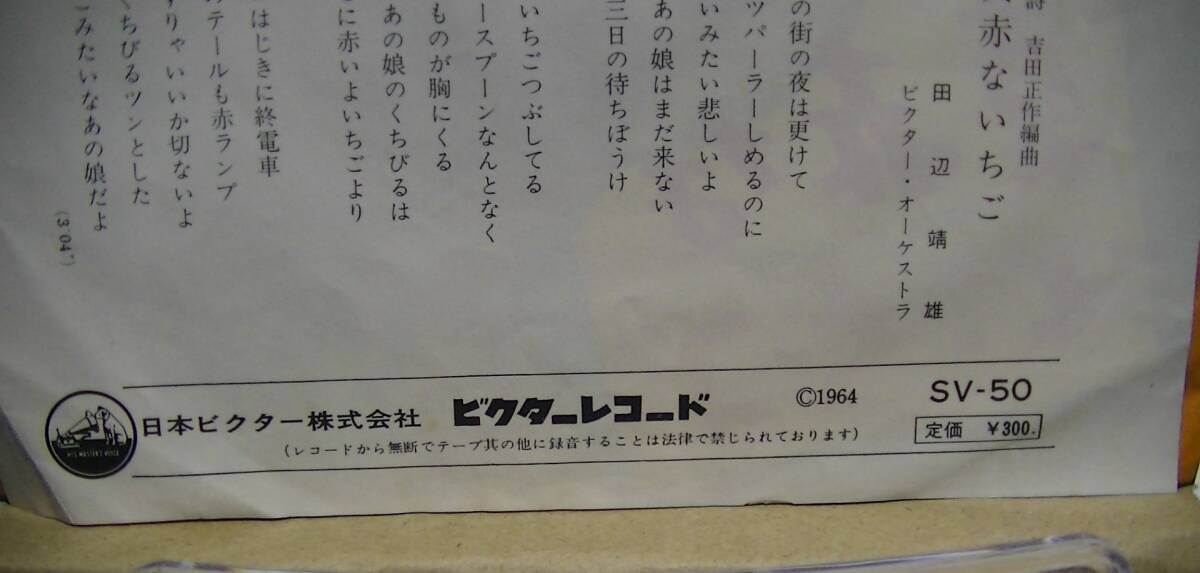 詩 吉田正作編曲
赤ないちご
田辺靖雄
ビクター・オーケストラ
の街の夜は更けて
ツパーラーしめるのに
いみたい悲しいよ
あの娘はまだ来ない
三日の待ちぼうけ
いちごつぶしてる
ースプーンなんとなく
ものが胸にくる
あの娘のくちびるは
に赤いよいちごより
はじきに終電車
テールも赤ランプ
りゃいいか切ないよ
くちびるツンとした
みたいなあの娘だよ
(3'04")
日本ビクター株式会社 ビクターレコード ©1964 SV-50
(レコードから無断でテープ其の他に録音することは法律で禁じられております) 定価 ¥300.
HIS MASTER'S VOICE